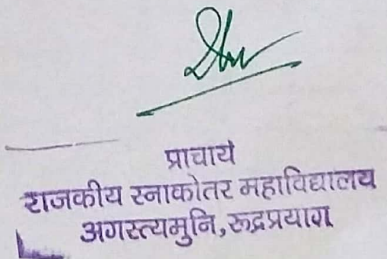 प्राचार्य
राजकीय स्नाकोतर महाविद्यालय
अगस्त्यमुनि,रूद्रप्रयाग